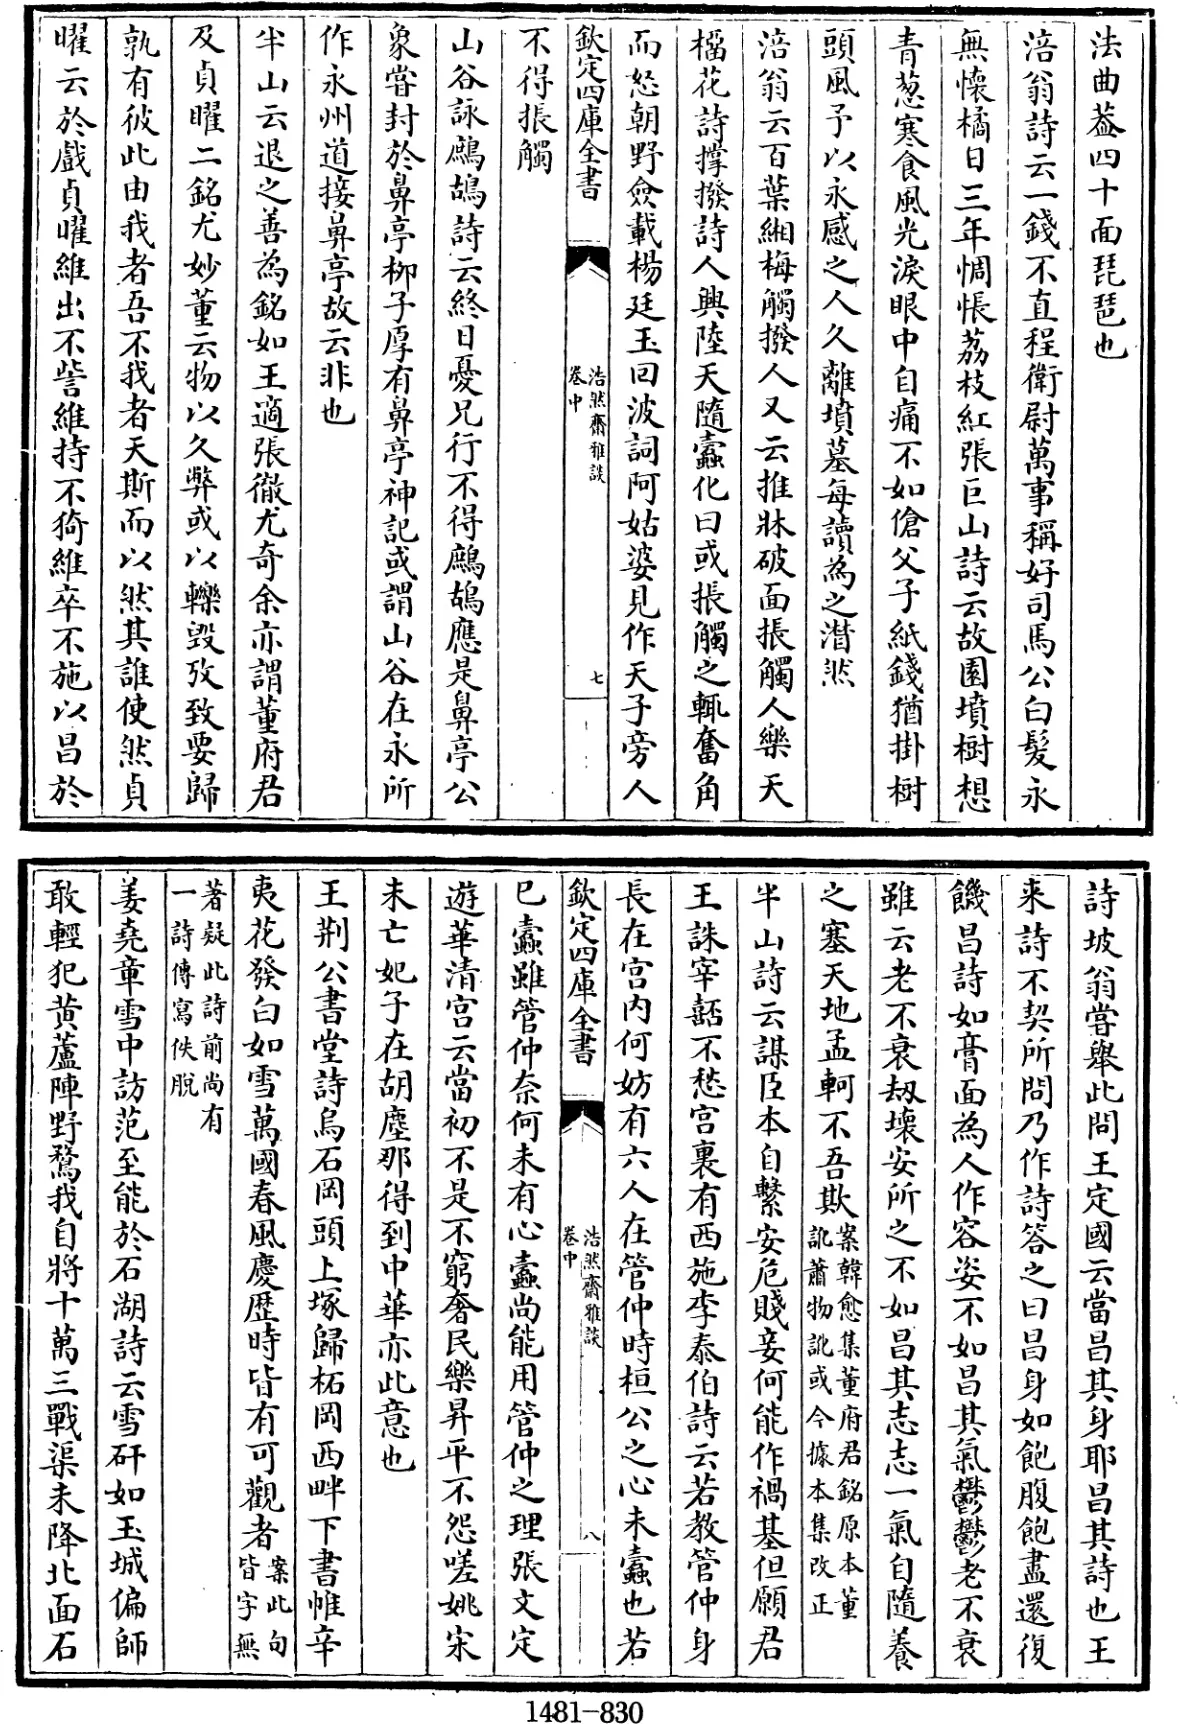 法曲葢四十面琵琶也
涪翁詩云一錢不直程衛尉萬事稱好司馬公白髮永
無懷橘日三年惆悵荔枝紅張巨山詩云故園墳樹想
青葱寒食風光淚眼中自痛不如傖父子紙錢猶掛樹
頭風予以永感之人久離墳墓每讀為之潸然
涪翁云百葉緗梅觸撥人又云推牀破面棖觸人樂天
榴花詩撑撥詩人興陸天隨蠧化曰或棖觸之輒奮角
而怒朝野僉載楊廷玉回波詞阿姑婆見作天子旁人
欽定四庫全書
浩然齋雅談
卷中
七
不得棖觸
山谷詠鷓鴣詩云終日憂兄行不得鷓鴣應是鼻亭公
象嘗封於鼻亭柳子厚有鼻亭神記或謂山谷在永所
作永州道接鼻亭故云非也
半山云退之善為銘如王適張徹尤奇余亦謂董府君
及貞曜二銘尤妙董云物以久弊或以轢毁攷致要歸
孰有彼此由我者吾不我者天斯而以然其誰使然貞
曜云於戲貞曜維出不訾維持不猗維卒不施以昌於
詩坡翁嘗舉此問王定國云當昌其身耶昌其詩也王
来詩不契所問乃作詩答之曰昌身如飽腹飽盡還復
饑昌詩如膏面為人作容姿不如昌其氣鬱鬱老不衰
雖云老不衰刼壞安所之不如昌其志志一氣自隨養
之塞天地孟軻不吾欺
案韓愈集董府君銘原本董
訛蕭物訛或今據本集改正
半山詩云謀臣本自繫安危賤妾何能作禍基但願君
王誅宰嚭不愁宫裏有西施李泰伯詩云若教管仲身
長在宫内何妨有六人在管仲時桓公之心未蠧也若
欽定四庫全書
浩然齋雅談
卷中
八
已蠧雖管仲奈何未有心蠧尚能用管仲之理張文定
遊華清宫云當初不是不窮奢民樂昇平不怨嗟姚宋
未亡妃子在胡塵那得到中華亦此意也
王荆公書堂詩烏石岡頭上塚歸柘岡西畔下書帷辛
夷花發白如雪萬國春風慶歴時皆有可觀者
案此句
皆字無
著疑此詩前尚有
一詩傳寫佚脱
姜堯章雪中訪范至能於石湖詩云雪矸如玉城偏師
敢輕犯黄蘆陣野鶩我自將十萬三戰渠未降北面石
1481-830